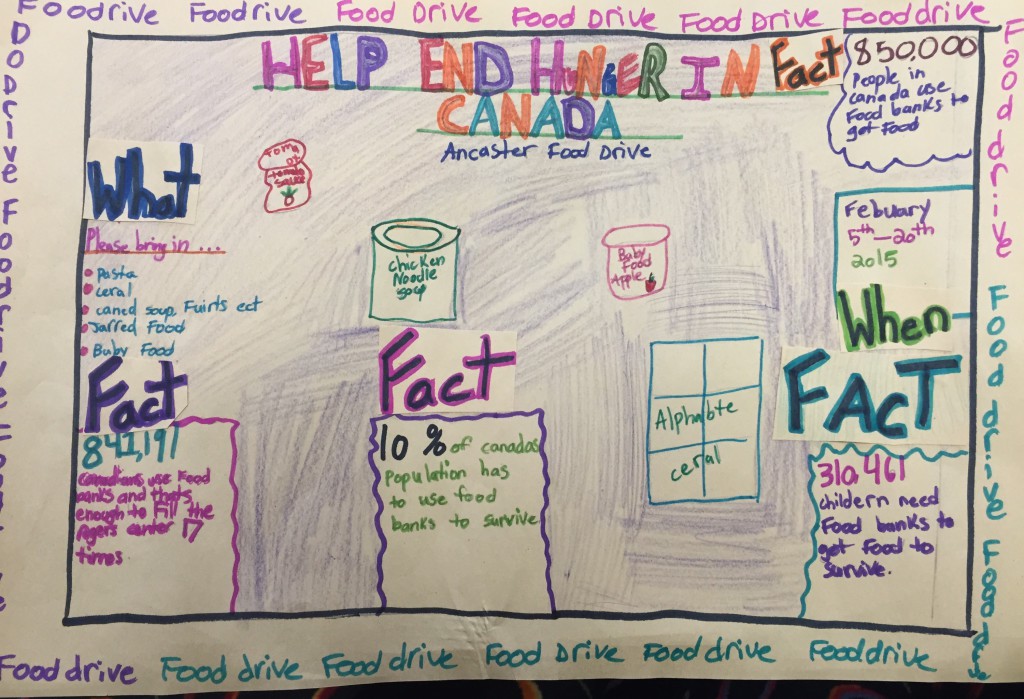 Foodrive Foodrive Food Drive Food Drive Food Drive Fooddrive
HELP END HUNGER IN
CANADA
Ancaster Food Drive
Fact
850,000
People in
canada use
Food banks to
get food
What
Please bring in ...
Pasta
ceral
caned soup, Fuirts ect
Jarred Food
Baby Food
tomato
sauce
chicken
Noodle
soup
Baby
Food
Apple
Febuary
5th-20th
2015
When
Fact
842,191
canadians use Food
banks and thats
enough to Fill the
rogers center 17
times.
Fact
10 % of canadas
Population has
to use food
banks to survive
Alphabte
ceral
FACT
310,461
childern need
Food banks to
get Food to
Survive.
Food drive Food drive Food drive
Food drive Food drive Food Drive Food drive Fooddrive